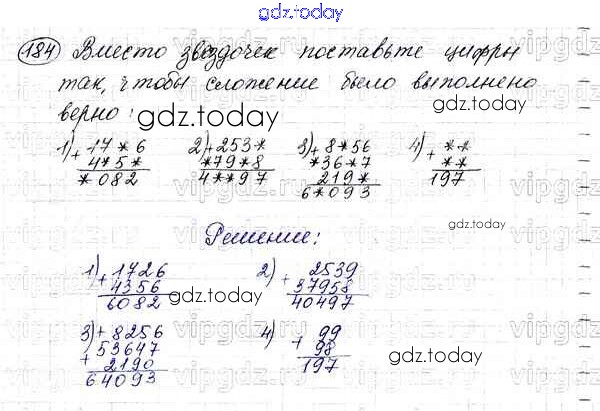 gdz.today
184 Вместо звездочек поставьте цифры
так, чтобы сложение было выполнено
верно:
gdz.today
gdz.today
1) + 17*6
4*5*
*082
2) + 253*
*79*8
4**97
3) + 8*56
*36*7
219*
6*093
4) + **
**
197
gdz.today
Решение:
1) + 1726
4356
6082
2) + 2539
37958
40497
3) + 8256
+ 53647
2190
64093
4) + 99
98
197
gdz.today
gdz.today
gdz.today